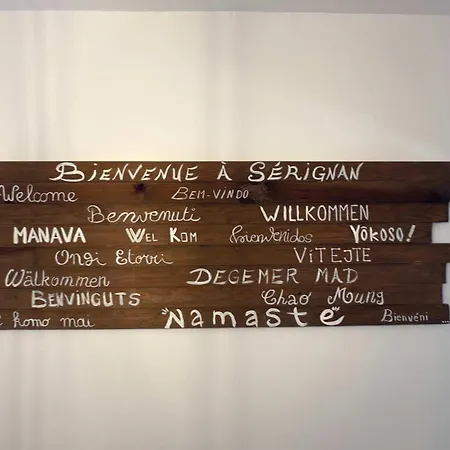 BIENVENUE À SÉRIGNAN
Welcome BEM-VINDO
Benvenuti WILLKOMMEN
MANAVA WEL KOM bienvenidos YÔKOSO!
Ongi Etorri VíTEJTE
Wälkommen DEGEMER MAD
BENVINGUTS Chao Mung
komo mai "Namasté" Bienvéni